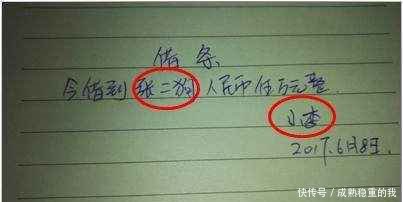 借条
今借到张二狗人民币伍万元整.
小李
2017.6月8日.
快传号/成熟稳重的我